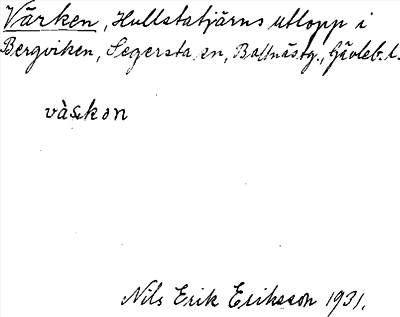 Värken, Hullstatjärns utlopp i
Bergviken, Segersta sn, Bollnäs tg., Gävleb. l.
vàskon
Nils Erik Eriksson 1931.